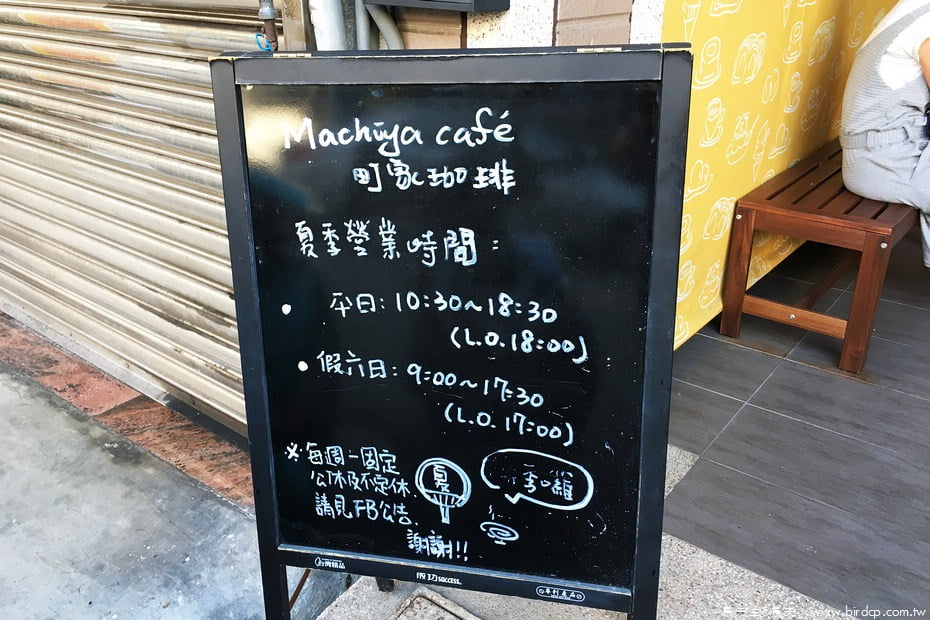 Machiya café
町家珈琲
夏季營業時間：
平日：10:30～18:30
(L.O.18:00)
假六日：9:00～17:30
(L.O.17:00)
※每週一固定
公休及不定休.
請見FB公告.
謝謝!!
夏
季囉
成功 success.
台灣精品
專利產品
www.birdcp.com.tw